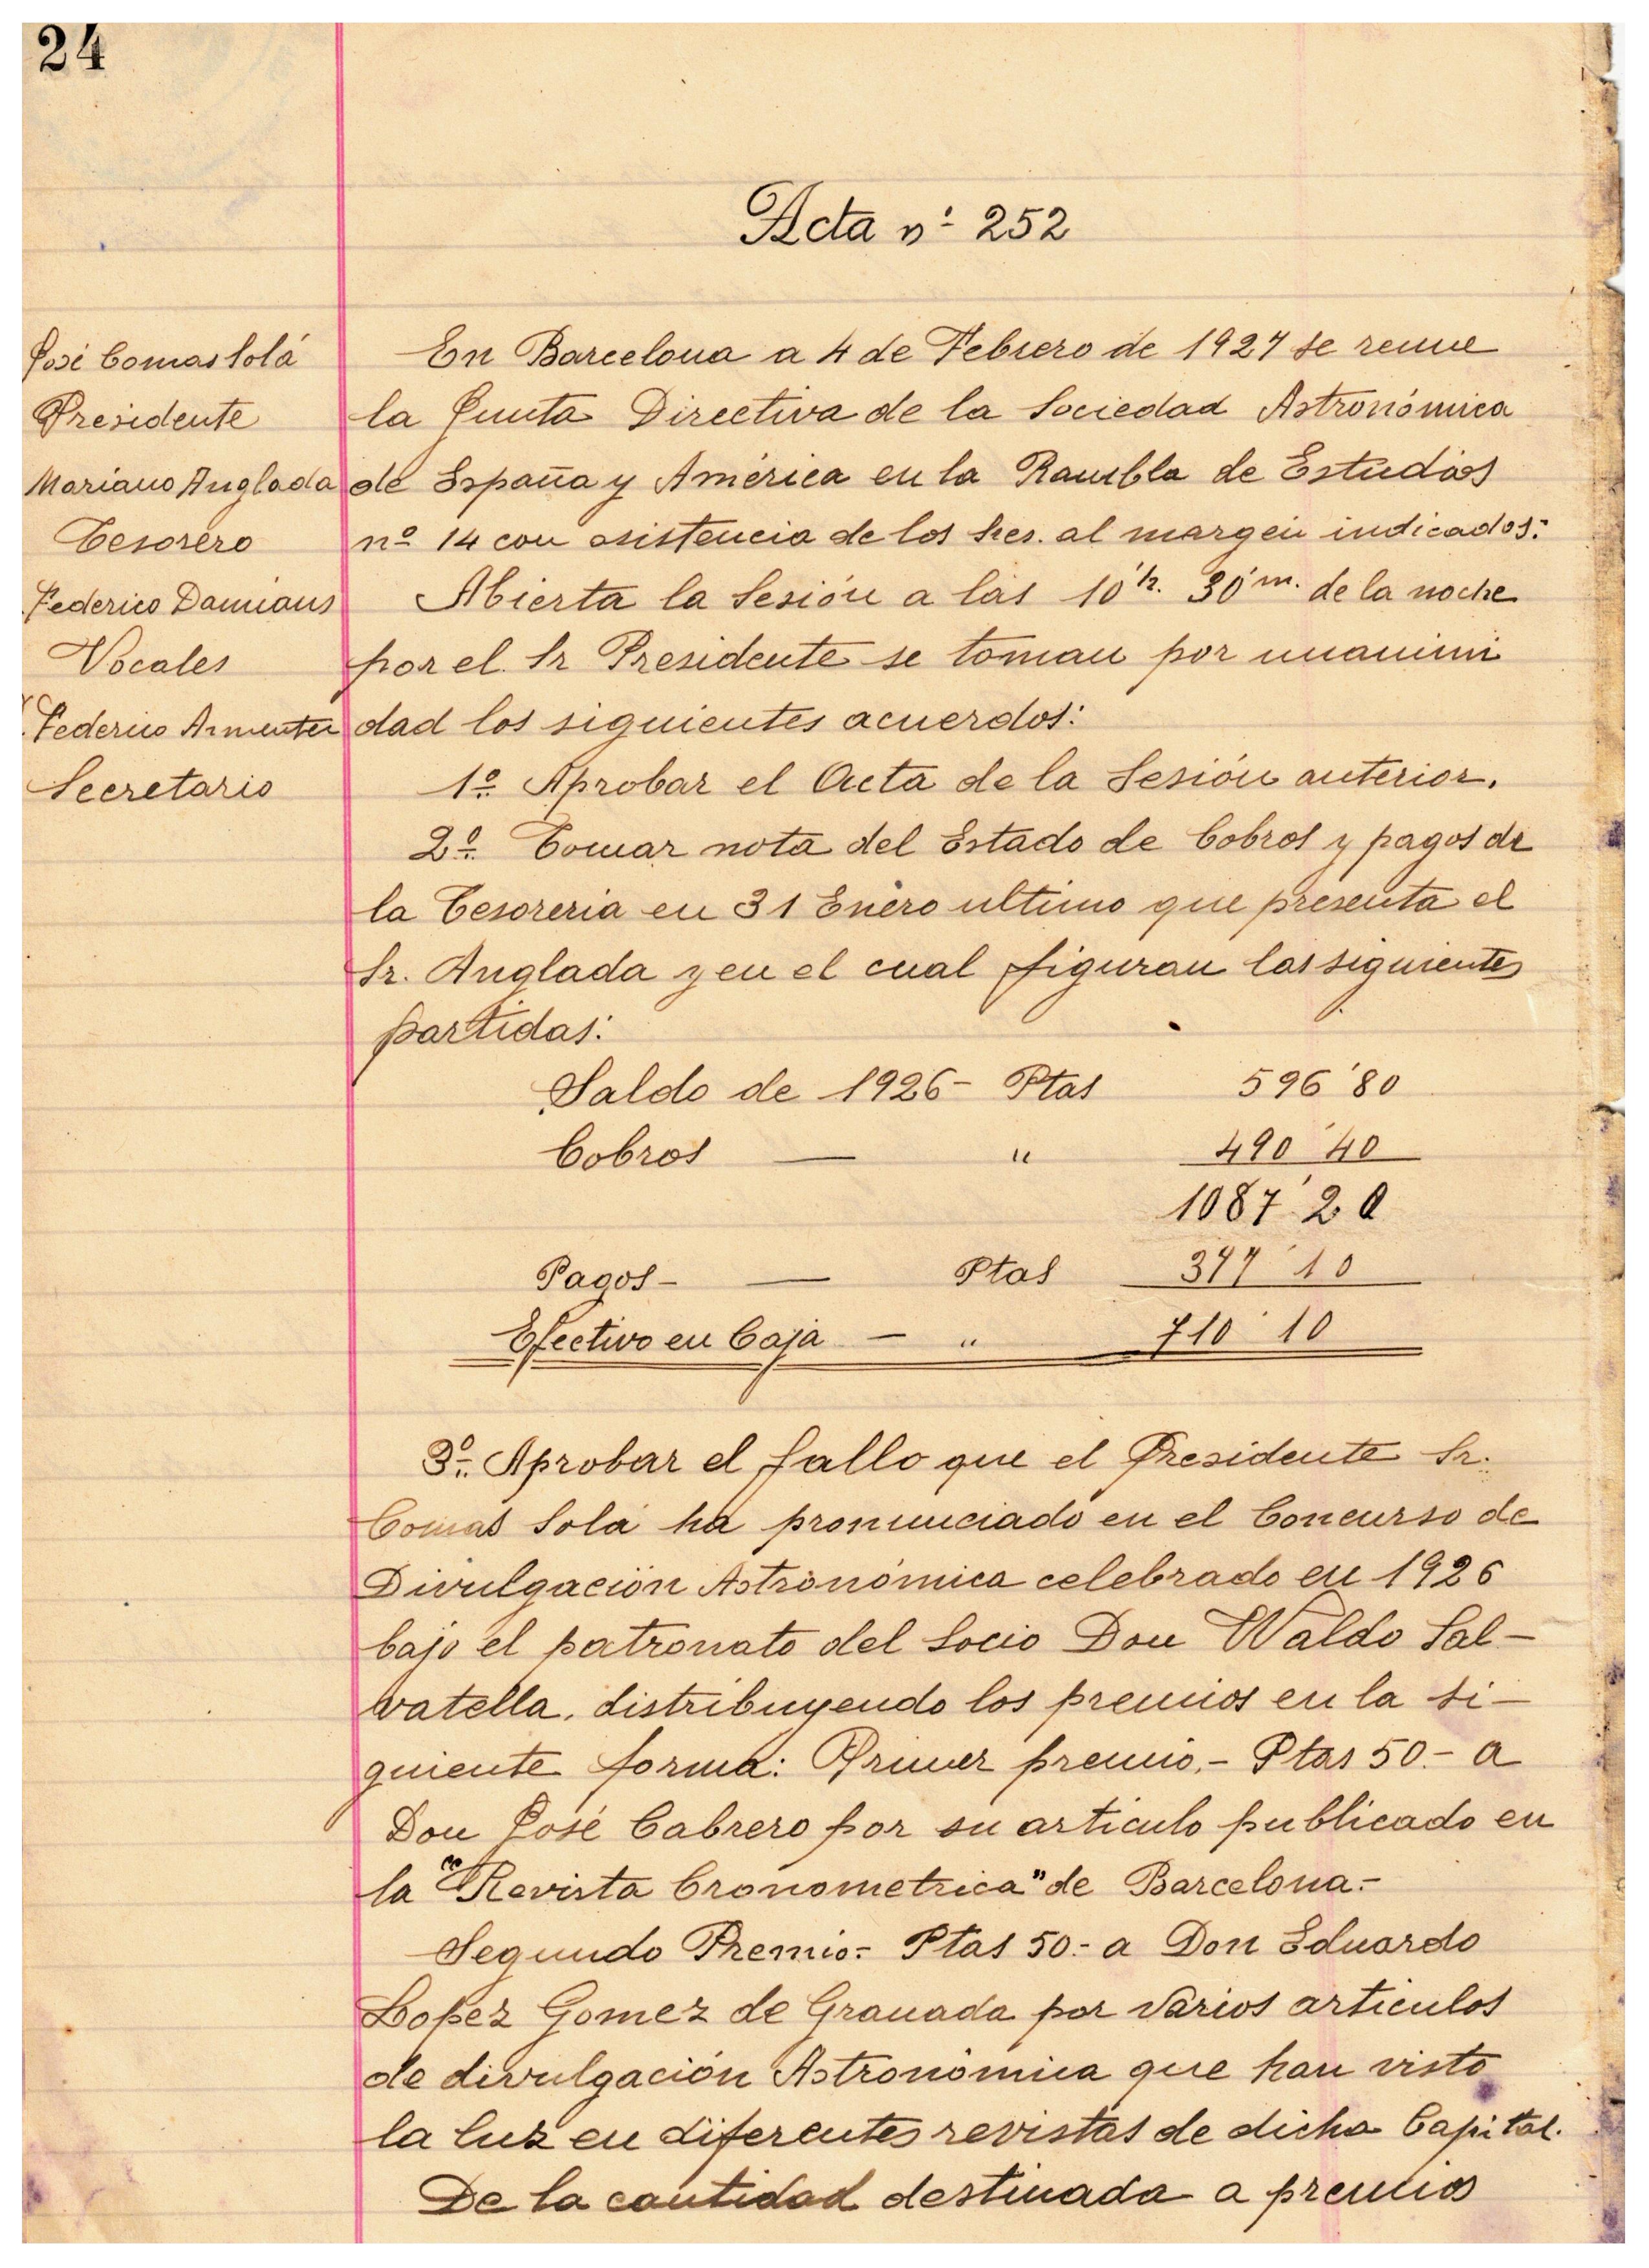 24
Acta nº 252
José Comas Solá
Presidente
Mariano Anglada
Tesorero
Federico Damians
Vocales
Federico Armenter
Secretario
En Barcelona a 4 de Febrero de 1927 se reune
la Junta Directiva de la Sociedad Astronómica
de España y América en la Rambla de Estudios
nº 14 con asistencia de los Sres. al margen indicados:
Abierta la Sesión a las 10 h. 30 m. de la noche
por el Sr Presidente se toman por unanimi
dad los siguientes acuerdos:
1º Aprobar el Acta de la Sesión anterior.
2º Tomar nota del Estado de Cobros y pagos de
la Tesoreria en 31 Enero ultimo que presenta el
Sr. Anglada y en el cual figuran las siguientes
partidas:
Saldo de 1926 - Ptas 596'80
Cobros — " 490'40
1087'20
Pagos - — Ptas 377'10
Efectivo en Caja — " 710'10
3º Aprobar el fallo que el Presidente Sr.
Comas Solá ha pronunciado en el Concurso de
Divulgación Astronómica celebrado en 1926
bajo el patronato del Socio Don Waldo Sal-
vatella, distribuyendo los premios en la si-
guiente forma: Primer premio.- Ptas 50.- a
Don José Cabrero por su articulo publicado en
la "Revista Cronometrica" de Barcelona.-
Segundo Premio.- Ptas 50.- a Don Eduardo
Lopez Gomez de Granada por varios articulos
de divulgación Astronómica que han visto
la luz en diferentes revistas de dicha Capital.
De la cantidad destinada a premios